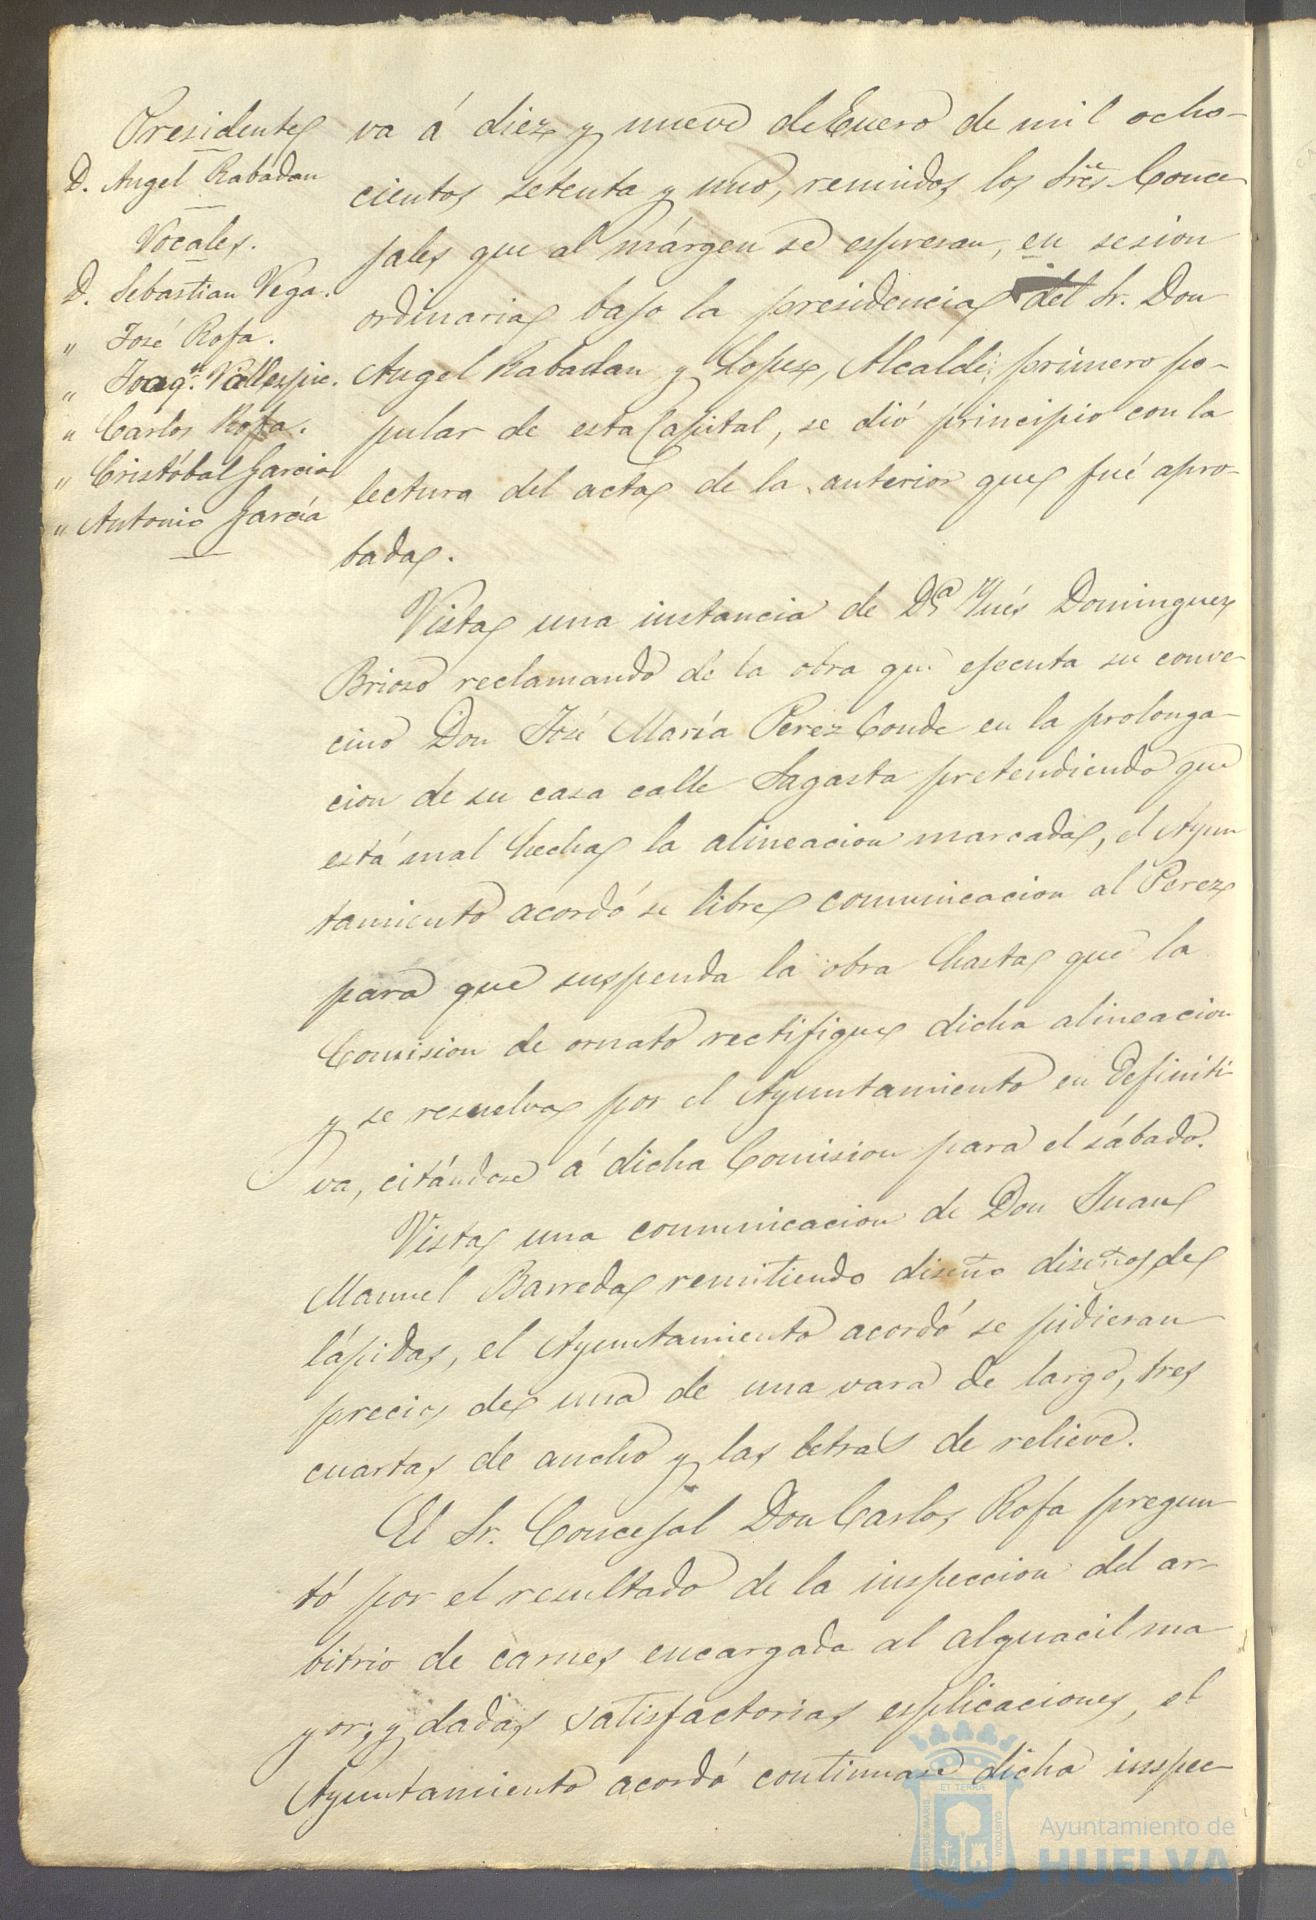 Presidente
D. Angel Rabadan
Vocales.
D. Sebastian Vega.
" José Rofa.
" Joaqn. Vallespin.
" Carlos Rofa.
" Cristóbal Garcia
" Antonio García
va á diez y nueve de Enero de mil ocho-
cientos setenta y uno, reunidos los Sres. Conce
jales que al márgen se espresan, en sesion
ordinaria bajo la presidencia del Sr. Don
Angel Rabadan y Lopez, Alcalde primero po-
pular de esta Capital, se dió principio con la
lectura del acta de la anterior que fué apro-
bada.
Vista una instancia de Da. Inés Dominguez
Brioso reclamando de la obra que ejecuta su conve-
cino Don José María Perez Conde en la prolonga-
cion de su casa calle Sagasta pretendiendo que
está mal hecha la alineacion marcada, el Ayun
tamiento acordó se libre comunicacion al Perez
para que suspenda la obra hasta que la
Comision de ornato rectifique dicha alineacion
y se resuelva por el Ayuntamiento en definiti-
va, citándose á dicha Comision para el sábado.
Vista una comunicacion de Don Juan
Manuel Barreda remitiendo diseño diseños de
lápidas, el Ayuntamiento acordó se pidieran
precios de una de una vara de largo, tres
cuartas de ancho y las letras de relieve.
El Sr. Concejal Don Carlos Rofa pregun-
tó por el resultado de la inspeccion del ar-
bitrio de carnes encargada al alguacil ma-
yor, y dadas satisfactorias esplicaciones, el
Ayuntamiento acordó continuase dicha inspec-
Ayuntamiento de
HUELVA